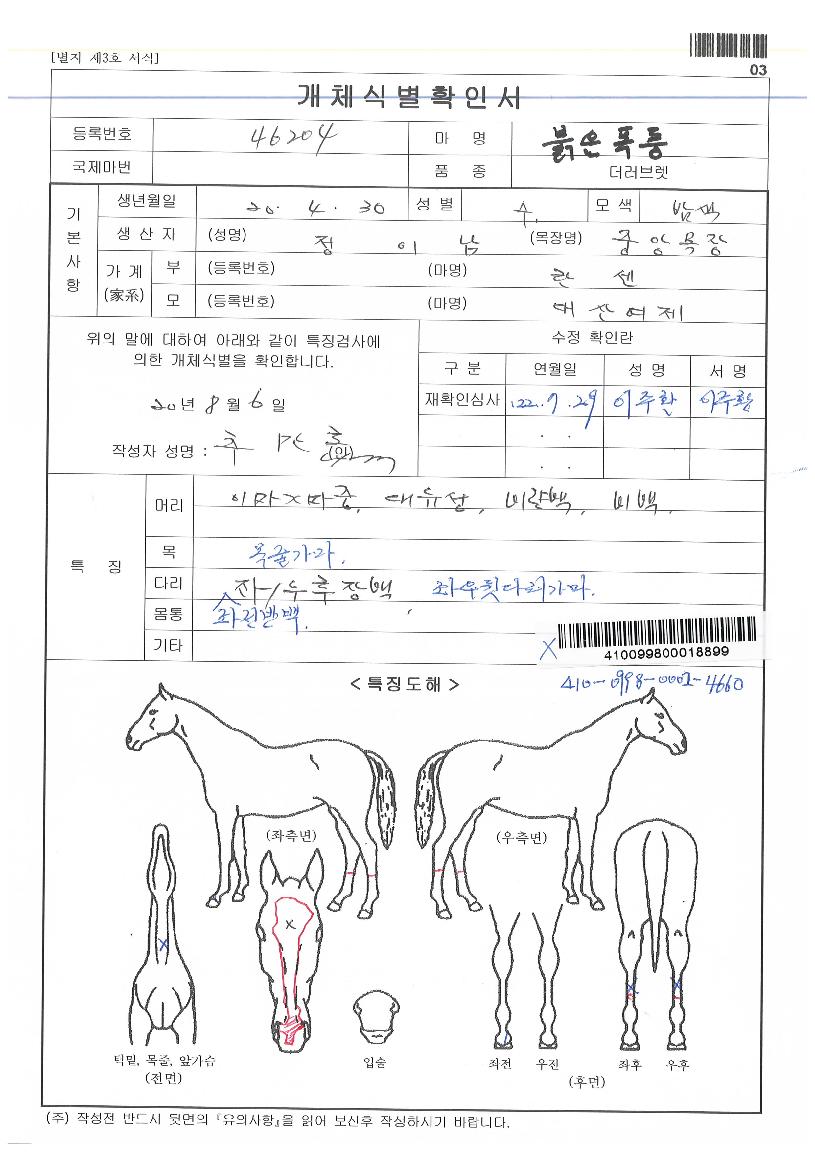 [별지 제3호 서식]
03
개체식별확인서
등록번호 46204 마 명 붉은폭퉁
국제마번 품 종 더러브렛
기본사항
생년월일 20. 4. 30 성 별 수. 모 색 밤색
생 산 지 (성명) 정 이 남 (목장명) 중앙목장
가 계 (家系) 부 (등록번호) (마명) 한 센
모 (등록번호) (마명) 대산여제
위의 말에 대하여 아래와 같이 특징검사에
의한 개체식별을 확인합니다.
20년 8월 6일
작성자 성명 : (인)
수정 확인란
구 분 연월일 성 명 서 명
재확인심사 22. 7. 29 이주환 이주환
. .
. .
특 징
머리 이마X파중, 대유선, 비량백, 비백.
목 목줄가마.
다리 좌/우후장백 좌우뒷다리가마.
좌전반백.
몸통
기타
X 410099800018899
410-098-0002-4660
< 특징도해 >
(좌측면) (우측면)
X
X
X X
턱밑, 목줄, 앞가슴
(전면)
입술
좌전 우전 좌후 우후
(후면)
(주) 작성전 반드시 뒷면의 『유의사항』을 읽어 보신후 작성하시기 바랍니다.